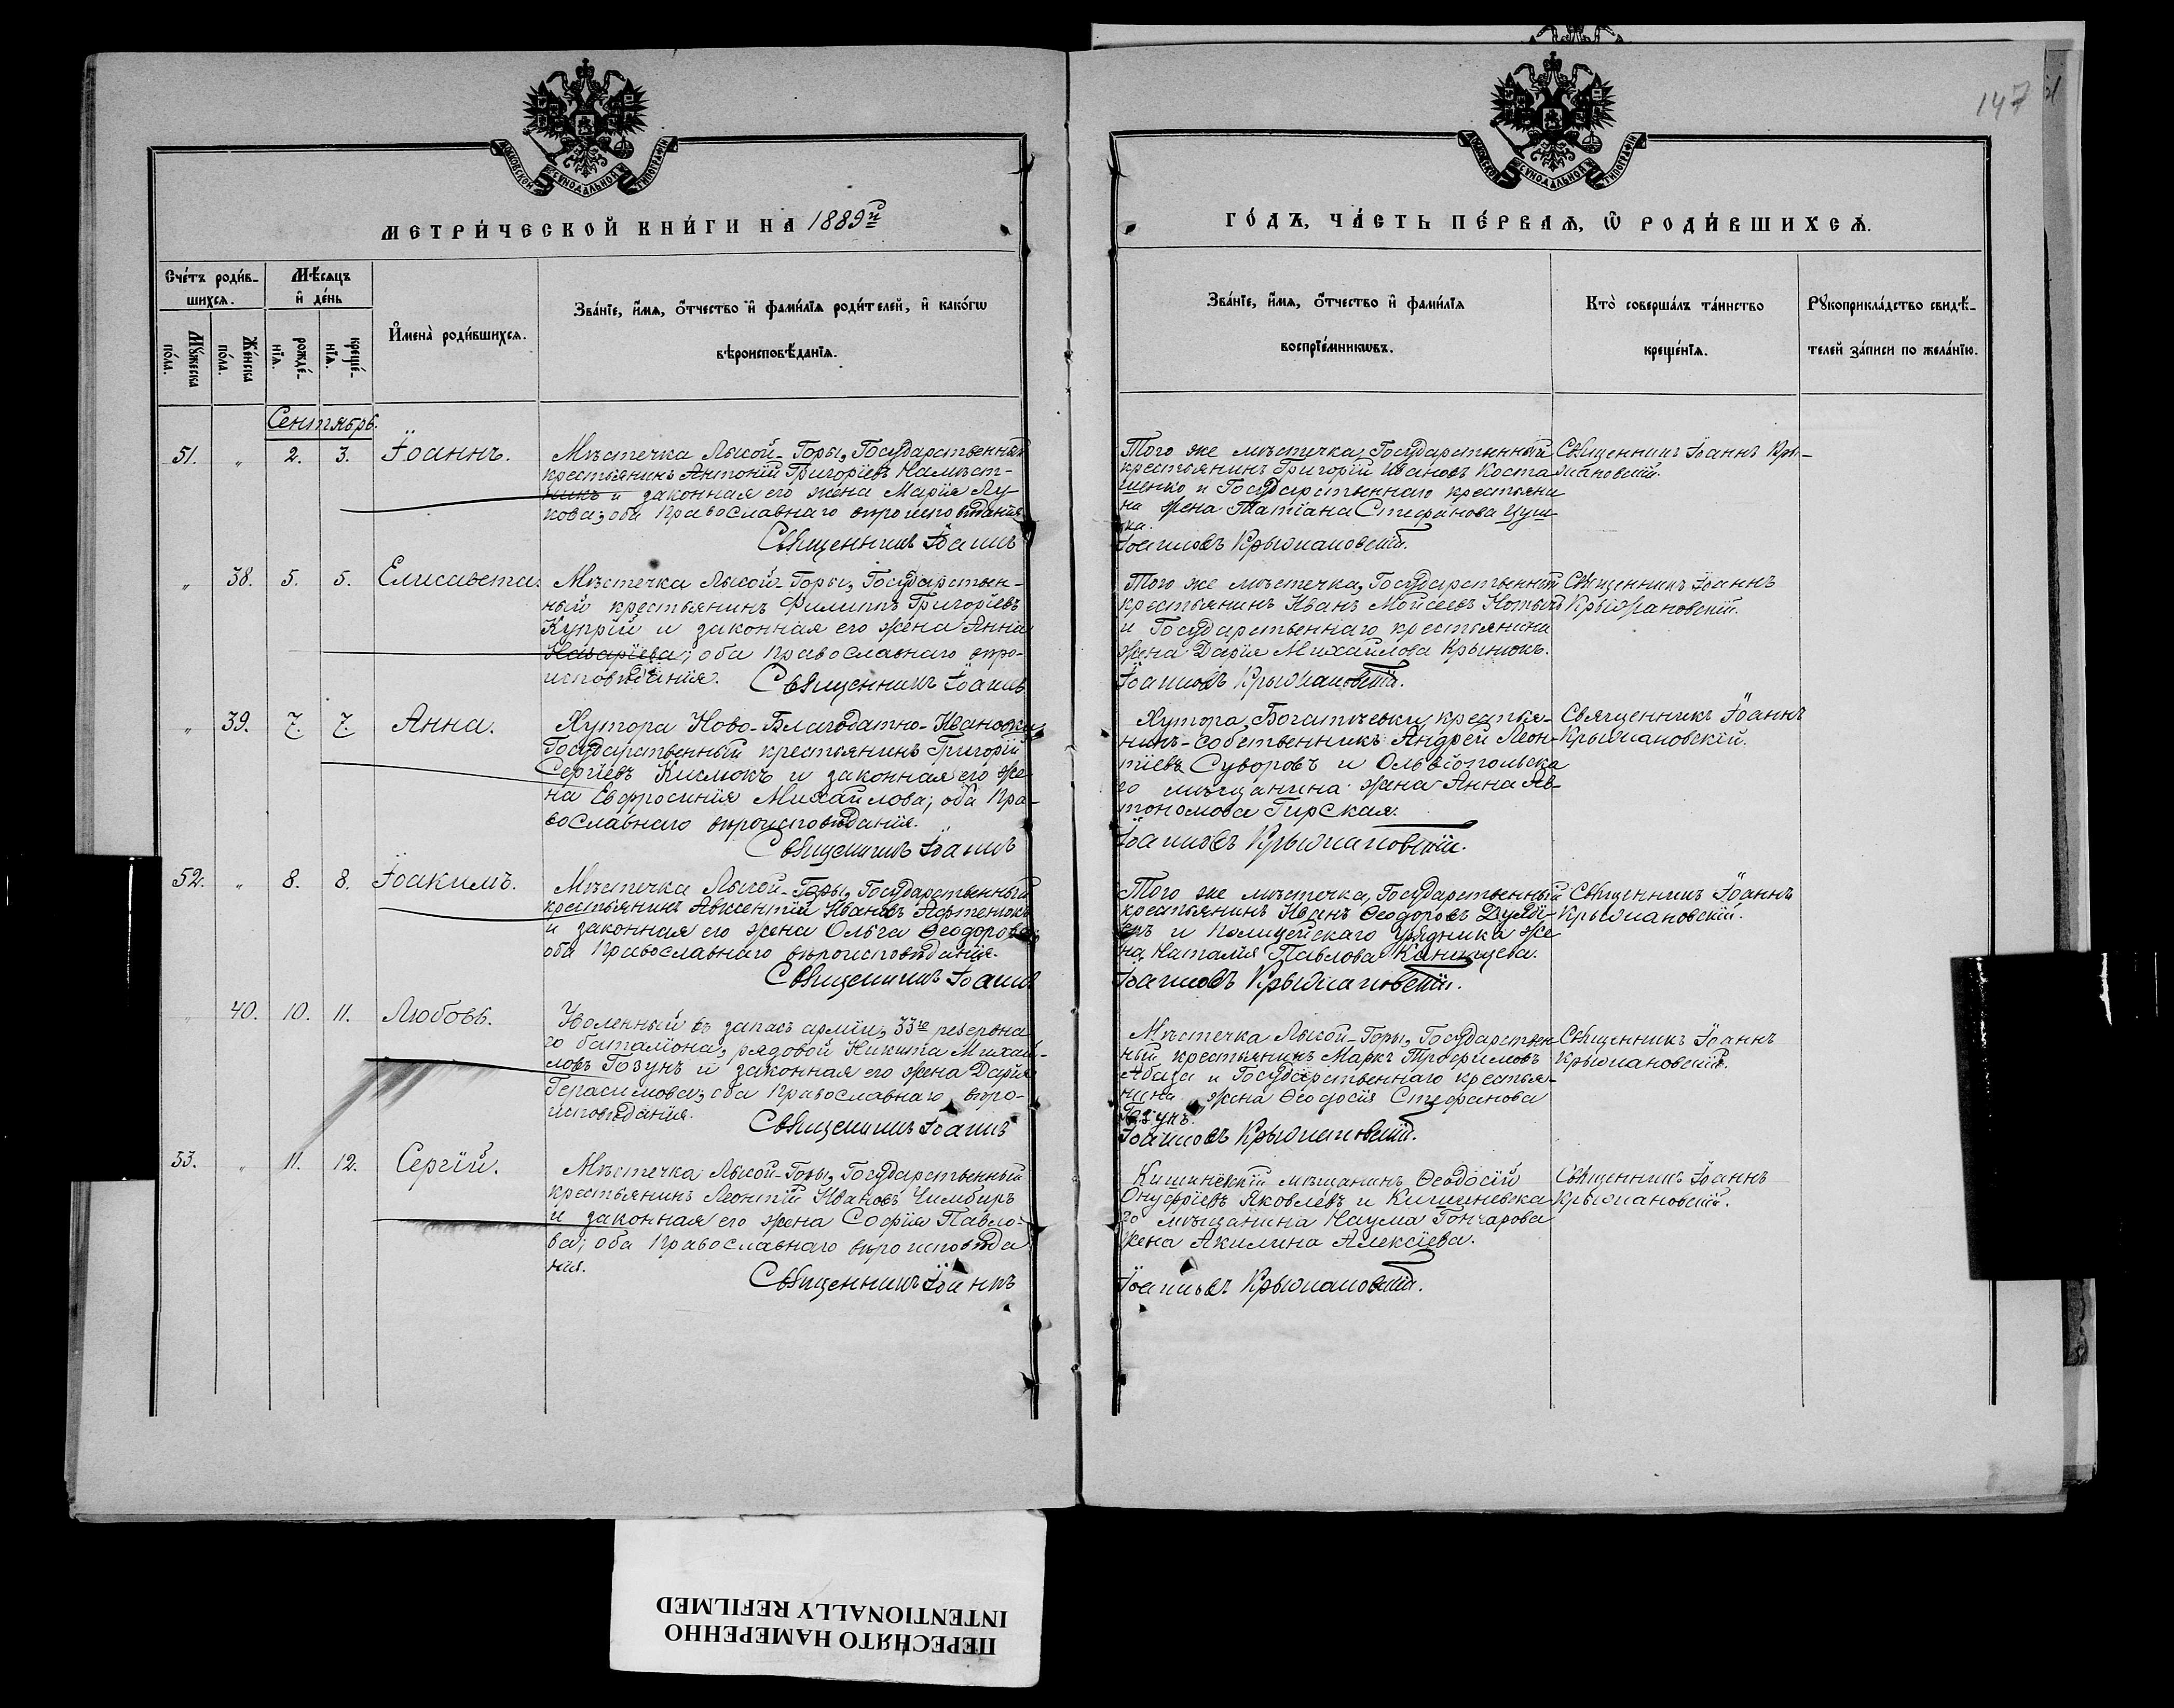 147
МОСКОВСКОЙ СѴНОДАЛЬНОЙ ТИПОГРАФІИ
МОСКОВСКОЙ СѴНОДАЛЬНОЙ ТИПОГРАФІИ
МЕТРИ́ЧЕСКОЙ КНИ́ГИ НА 1889й
ГО́ДЪ, ЧА́СТЬ ПЕ́РВАѦ, Ѽ РОДИ́ВШИХСѦ.
Сче́тъ роди́в-
шихсѧ.
Мꙋ́жеска по́ла.
Же́нска по́ла.
Мѣ́сѧцъ
и҆ де́нь
рожде́-
нїѧ.
креще́-
нїѧ.
И҆мена̀ роди́вшихсѧ.
Зва́нїе, и҆́мѧ, ѻ҆́тчество и҆ фами́лїѧ роди́телей, и҆ како́гѡ
вѣроисповѣ́данїѧ.
Зва́нїе, и҆́мѧ, ѻ҆́тчество и҆ фами́лїѧ
воспрїе́мникѡвъ.
Кто̀ соверша́лъ та́инство
креще́нїѧ.
Рꙋкоприкла́дство свидѣ́-
телей за́писи по жела́нїю.
Сентябрь.
51. " 2. 3. Іоаннъ.
Мѣстечка Лысой-Горы, Государственный
крестьянинъ Антоній Григоріевъ Намѣст-
никъ и законная его жена Марія Лу-
кова; оба Православнаго вѣроисповѣданія
Священникъ Іоаннъ
Того же мѣстечка, Государственный
крестьянинъ Григорій Ивановъ Коста
шенко и Государственнаго крестьяни
на жена Татіана Стефанова Цуш-
ка.
Іоанновъ Крыжановскій.
Священникъ Іоаннъ Кры-
жановскій.
" 38. 5. 5. Елисавета.
Мѣстечка Лысой-Горы, Государствен-
ный крестьянинъ Филиппъ Григоріевъ
Купрій и законная его жена Анна
Назаріева; оба Православнаго вѣро-
исповѣданія.
Священникъ Іоаннъ
Того же мѣстечка, Государственный
крестьянинъ Иванъ Моисеевъ
и Государственнаго крестьянина
жена Дарія Михайлова Крынюкъ.
Іоанновъ Крыжановскій.
Священникъ Іоаннъ
Крыжановскій.
" 39. 7. 7. Анна.
Хутора Ново-Благодатно-Ивановки
Государственный крестьянинъ Григорій
Сергіевъ Кислюкъ и законная его же-
на Евфросинія Михайлова; оба Пра-
вославнаго вѣроисповѣданія.
Священникъ Іоаннъ
Хутора Богатичевки, крестья-
нинъ-собственникъ Андрей Леон-
тіевъ Суворовъ и Ольвіопольска
го мѣщанина жена Анна Ав-
тономова Гирская.
Іоанновъ Крыжановскій.
Священникъ Іоаннъ
Крыжановскій.
52. " 8. 8. Іоакимъ.
Мѣстечка Лысой-Горы, Государственный
крестьянинъ Авксентій Ивановъ Афтенюкъ
и законная его жена Ольга Ѳеодорова;
оба Православнаго вѣроисповѣданія.
Священникъ Іоаннъ
Того же мѣстечка, Государственный
крестьянинъ Иванъ Ѳеодоровъ
и Полицейскаго Урядника же
на Наталія Павлова
Іоанновъ Крыжановскій.
Священникъ Іоаннъ
Крыжановскій.
" 40. 10. 11. Любовь.
Уволенный въ запасъ арміи, 33го резервна
го баталіона, рядовой Никита Михай-
ловъ Гозунъ и законная его жена Дарія
Герасимова; оба Православнаго вѣро-
исповѣданія.
Священникъ Іоаннъ
Мѣстечка Лысой-Горы, Государствен-
ный крестьянинъ Маркъ Трофимовъ
Абаза и Государственнаго крестья-
нина жена Ѳеодосія Стефанова
Гозунъ.
Іоанновъ Крыжановскій.
Священникъ Іоаннъ
Крыжановскій.
53. " 11. 12. Сергій.
Мѣстечка Лысой-Горы, Государственный
крестьянинъ Леонтій Ивановъ Чимбиръ
и законная его жена Софія Павло-
ва; оба Православнаго вѣроисповѣда
нія.
Священникъ Іоаннъ
Кишиневскій мѣщанинъ Ѳеодосій
Онуфріевъ Яковлевъ и Кишиневска-
го мѣщанина Наума Гончарова
жена Акилина Алексіева.
Іоанновъ Крыжановскій.
Священникъ Іоаннъ
Крыжановскій.
ПЕРЕСНЯТО НАМЕРЕННО
INTENTIONALLY REFILMED